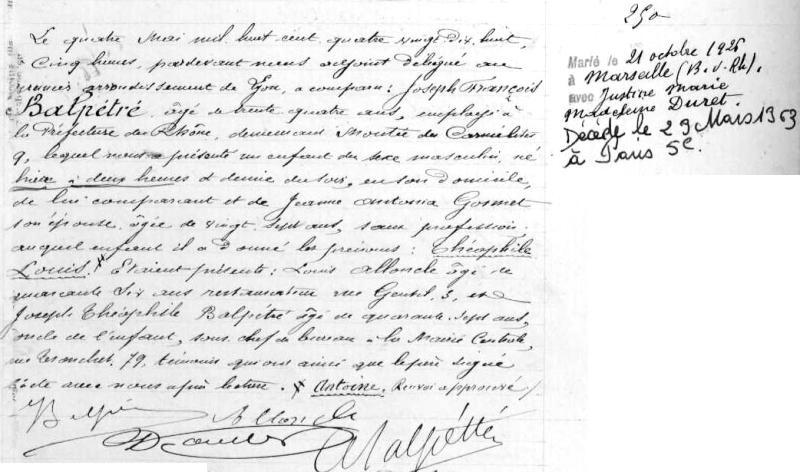 Le quatre Mai mil huit cent quatre vingt dix huit,
cinq heures, pardevant nous adjoint délégué au
arrondissement de Lyon, a comparu : Joseph François
Balpétré, âgé de trente quatre ans, employé à
la Préfecture du Rhône, demeurant Montée des Carmélites
9, lequel nous a présenté un enfant du sexe masculin, né
hier à deux heures et demie du soir, en son domicile,
de lui comparant et de Jeanne Antonia Gosmet
son épouse âgée de vingt sept ans, sans profession
auquel enfant il a donné les prénoms : Théophile
Louis. Etaient présents : Louis Alloncle âgé de
quarante six ans restaurateur rue Gentil, 3, et
Joseph Théophile Balpétré âgé de quarante sept ans,
oncle de l'enfant, sous chef de bureau à la Mairie Centrale,
rue Tronchet, 79, témoins qui ont ainsi que le père signé
avec nous après lecture. Antoine. Renvoi approuvé
Alloncle
Balpétré
250
Marié le 21 octobre 1926
à Marseille (B. d. Rh.),
avec Justine Marie
Madeleine Duret.
Décédé le 29 Mars 1963
à Paris 5e.